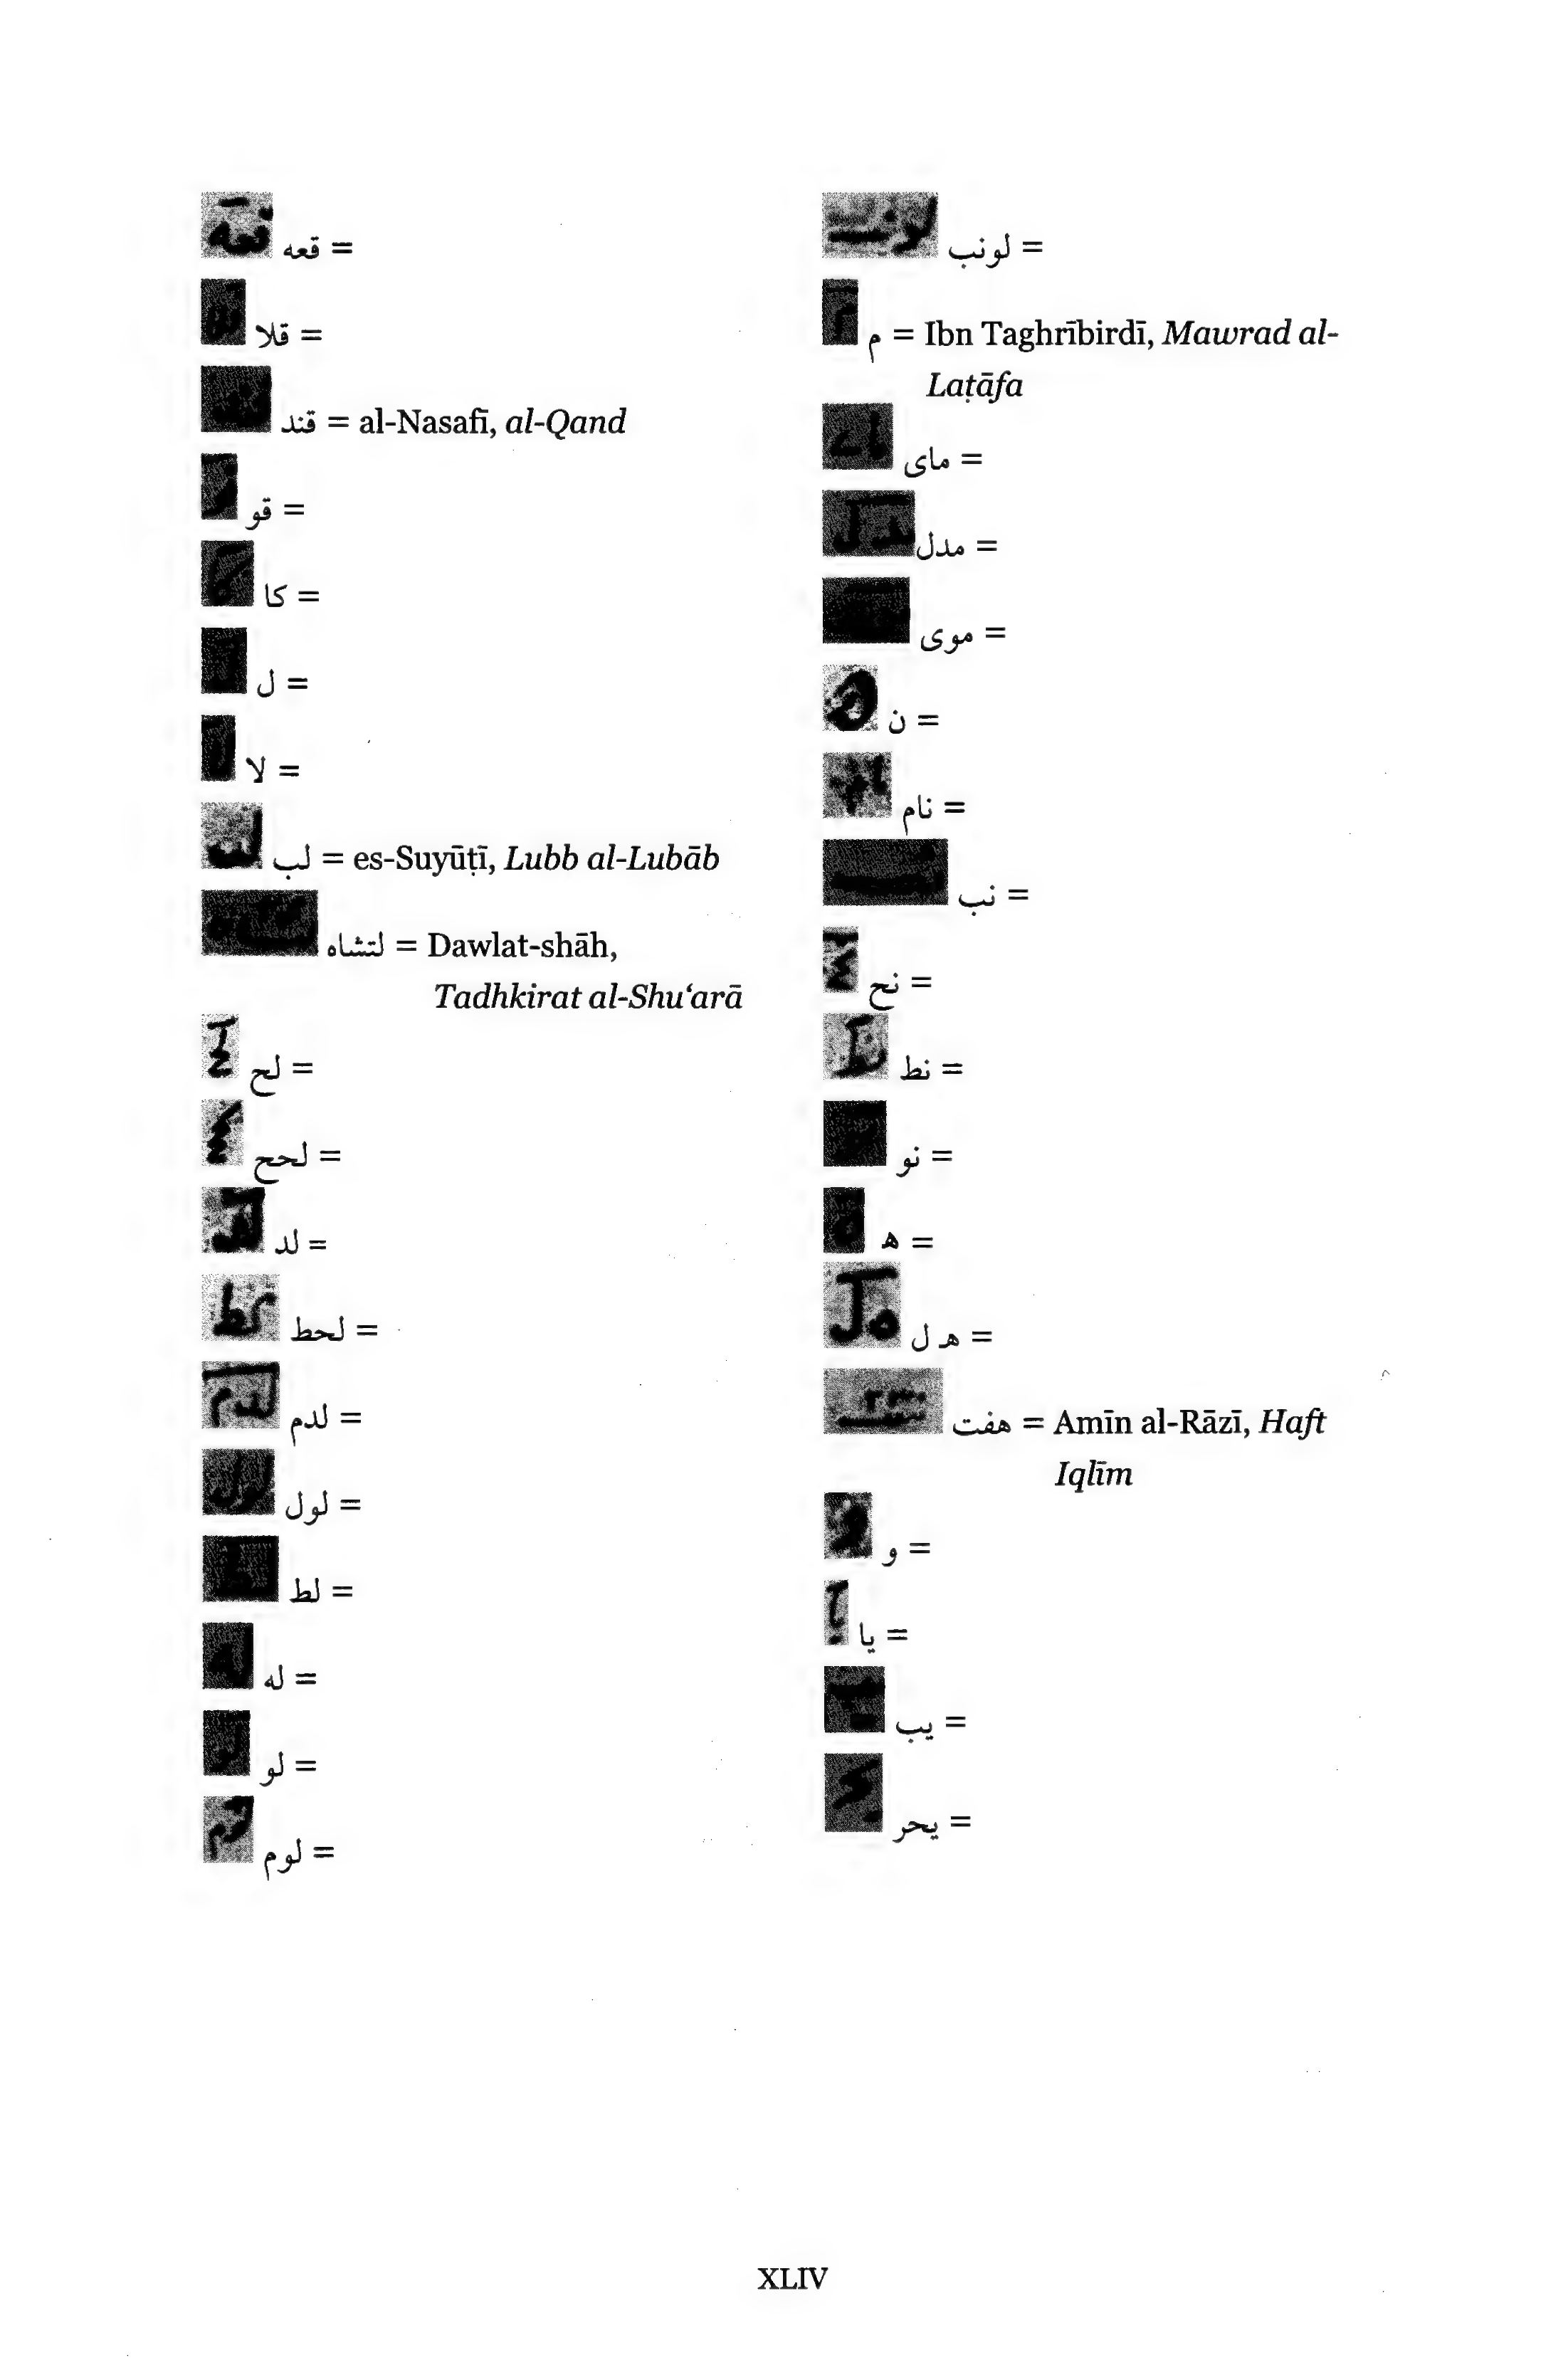 قعه =
قلا =
قند = al-Nasafī, al-Qand
قو =
كا =
ل =
لا =
لب = es-Suyūṭī, Lubb al-Lubāb
لتشاه = Dawlat-shāh,
Tadhkirat al-Shu‘arā
لح =
لحح =
لد =
لحط =
لدم =
لول =
لط =
له =
لو =
لوم =
لونب =
م = Ibn Taghrībirdī, Mawrad al-
Laṭāfa
ماى =
مدل =
موى =
ن =
نام =
نب =
نح =
نط =
نو =
ه =
هـ ل =
هفت = Amīn al-Rāzī, Haft
Iqlīm
و =
يا =
يب =
يحر =
XLIV